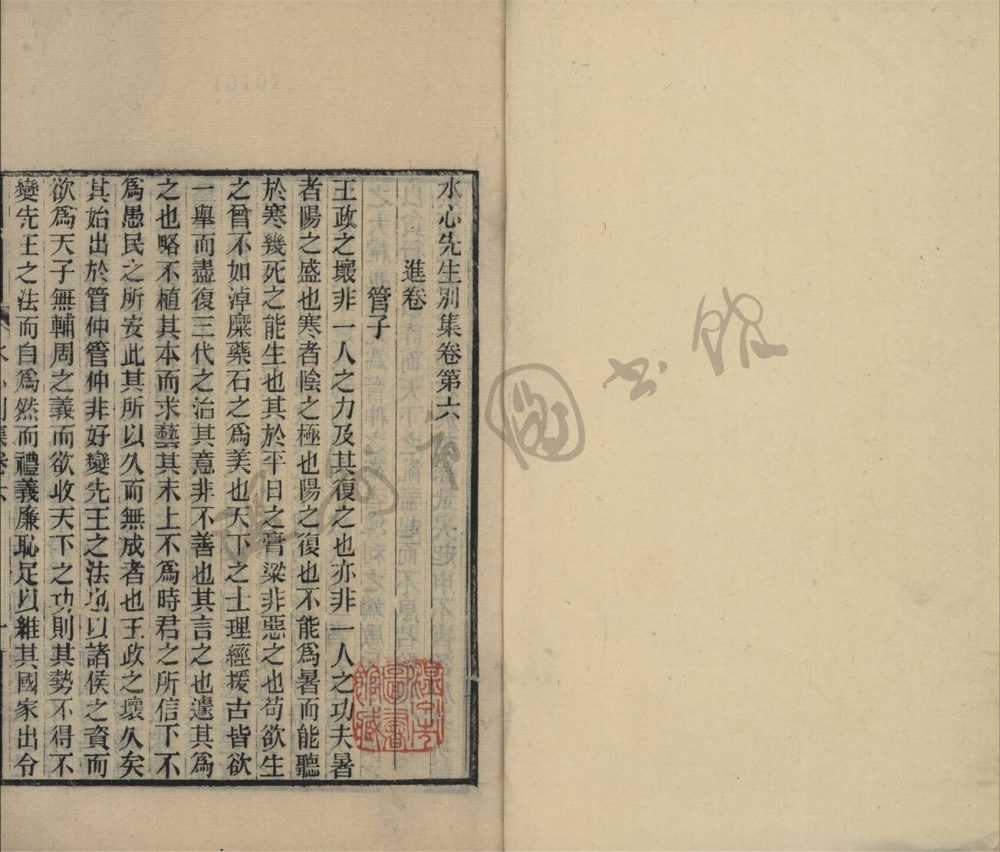 水心先生別集卷第六
進卷
管子
王政之壞非一人之力及其復之也亦非一人之功夫暑
者陽之盛也寒者陰之極也陽之復也不能爲暑而能聽
於寒幾死之能生也其於平日之膏粱非惡之也苟欲生
之曾不如淖糜藥石之爲美也天下之士理經援古皆欲
一舉而盡復三代之治其意非不善也其言之也遽其爲
之也略不植其本而求藝其末上不爲時君之所信下不
爲愚民之所安此其所以久而無成者也王政之壞久矣
其始出於管仲管仲非好變先王之法也以諸侯之資而
欲爲天子無輔周之義而欲收天下之功則其勢不得不
變先王之法而自爲然而禮義廉恥足以維其國家出令
圖書館